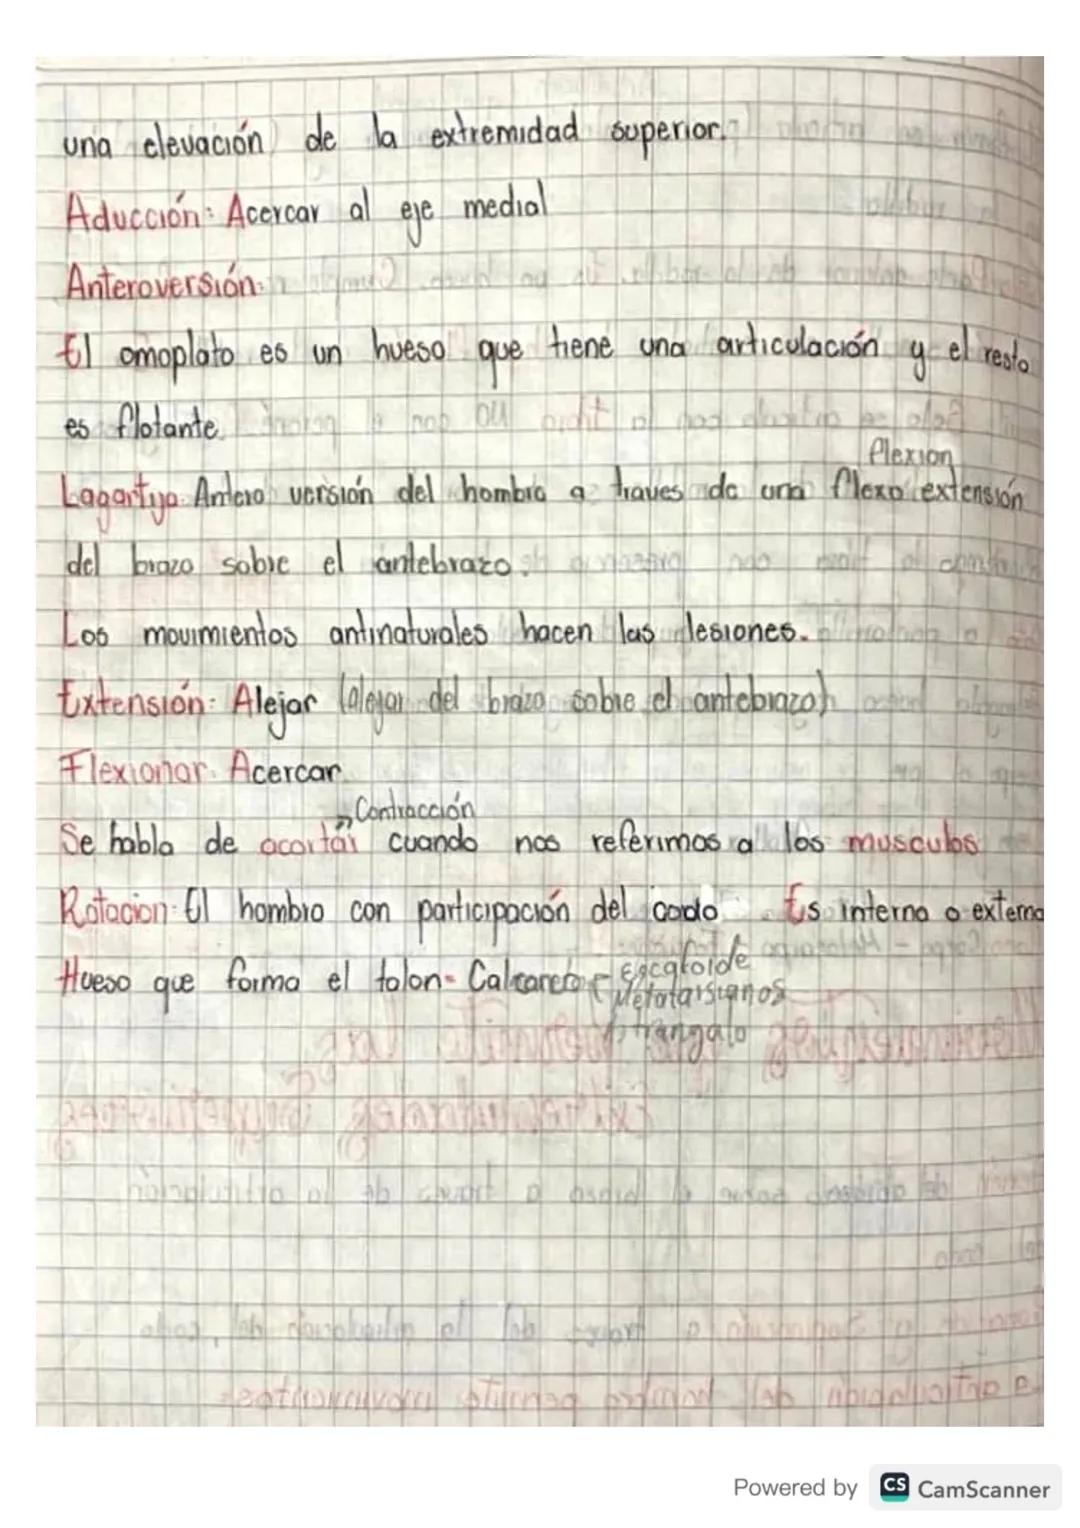 una elevación de la extremidad superior.
Aducción: Acercar al eje medial
Anteroversión:
El omoplato es un hueso que tiene una articulación y el resto
es flotante.
flexion
Lagartija: Antero versión del hombro a traves de una flexo extensión
del brazo sobre el antebrazo.
Los movimientos antinaturales hacen las lesiones.
Extensión: Alejar (alejar del brazo sobre el antebrazo)
Flexionar: Acercar.
Contracción
Se habla de acortar cuando nos referimos a los musculos
Rotacion: El hombro con participación del codo Es interna o externa
Hueso que forma el talon- Calcareo - Escafoide
Metatarsianos
Astrangalo
Powered by CS CamScanner